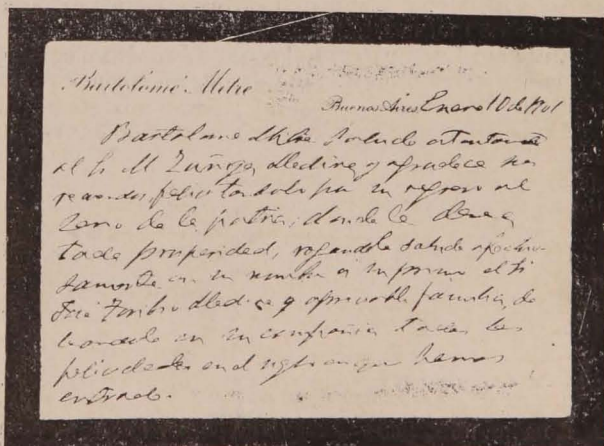 Bartolomé Mitre
Buenos Aires Enero 10 de 1901
Bartolomé Mitre saluda atentamte
al Sr M Zuñiga Medina y agradece sus
recuerdos felicitandolo por su regreso al
seno de la patria, donde le desea
toda prosperidad, rogandole salude afectuo
samente en su nombre a su primo el Sr
José Toribio Medina y apreciable familia, de
seandole en su compañia todas las
felicidades en el siglo en que hemos
entrado.